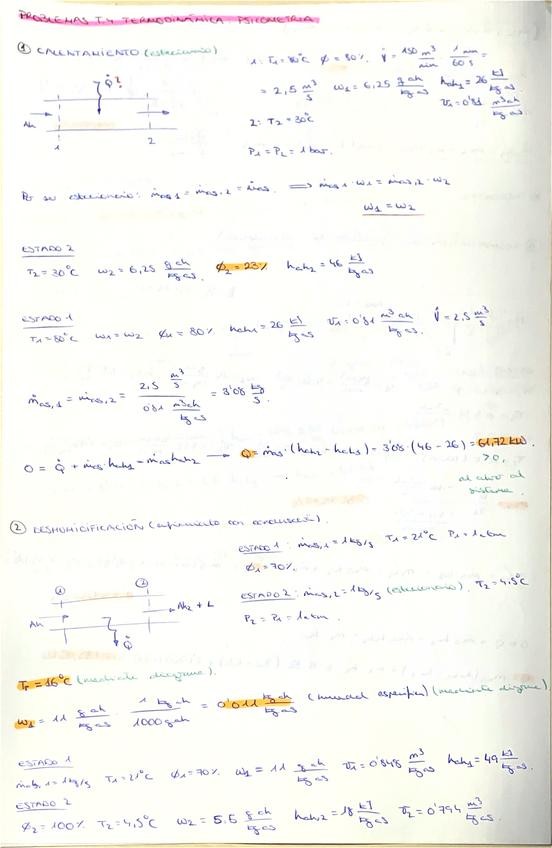 PROBLEMAS T.4 TERMODINÁMICA: PSICOMETRIA
① CALENTAMIENTO (estacionario)
1: T1 = 80°C ϕ = 80% V̇ = 150 m³/min · 1 min/60 s =
= 2,5 m³/s ω1 = 6,25 g ah/kg as hah1 = 26 kJ/kg as
v1 = 0'81 m³ah/kg as
2: T2 = 30°C
P1 = P2 = 1 bar.
Q̇?
Ah
1 2
Por ser estacionario: ṁas,1 = ṁas,2 = ṁas. ⟹ ṁas,1 · ω1 = ṁas,2 · ω2
ω1 = ω2
ESTADO 2
T2 = 30°C ω2 = 6,25 g ah/kg as. ϕ2 = 23% hah2 = 46 kJ/kg as
ESTADO 1
T1 = 80°C ω1 = ω2 ϕ1 = 80% hah1 = 26 kJ/kg as v1 = 0'81 m³ah/kg as. V̇ = 2,5 m³/s
ṁas,1 = ṁas,2 = 2,5 m³/s / 0'81 m³ah/kg as = 3'08 kg/s.
0 = Q̇ + ṁas·hah1 - ṁas·hah2 → Q̇ = ṁas·(hah2 - hah1) = 3'08·(46 - 26) = 61,72 kW.
>0,
sistema.
② DESHUMIDIFICACIÓN (enfriamiento con condensación).
ESTADO 1: ṁas,1 = 1 kg/s T1 = 21°C P1 = 1 atm
ϕ1 = 70%.
ESTADO 2: ṁas,2 = 1 kg/s (estacionario). T2 = 4,5°C
P2 = P1 = 1 atm.
① ②
Ah1 Ah2 + L
Q̇
Tr = 16°C (mediante diagrama).
ω1 = 11 g ah/kg as · 1 kg ah/1000 g ah = 0'011 kg ah/kg as (humedad específica) (mediante diagrama).
ESTADO 1
ṁas,1 = 1 kg/s T1 = 21°C ϕ1 = 70% ω1 = 11 g ah/kg as v1 = 0'848 m³/kg as hah1 = 49 kJ/kg as.
ESTADO 2
ϕ2 = 100% T2 = 4,5°C ω2 = 5,5 g ah/kg as hah2 = 18 kJ/kg as v2 = 0'794 m³/kg as.